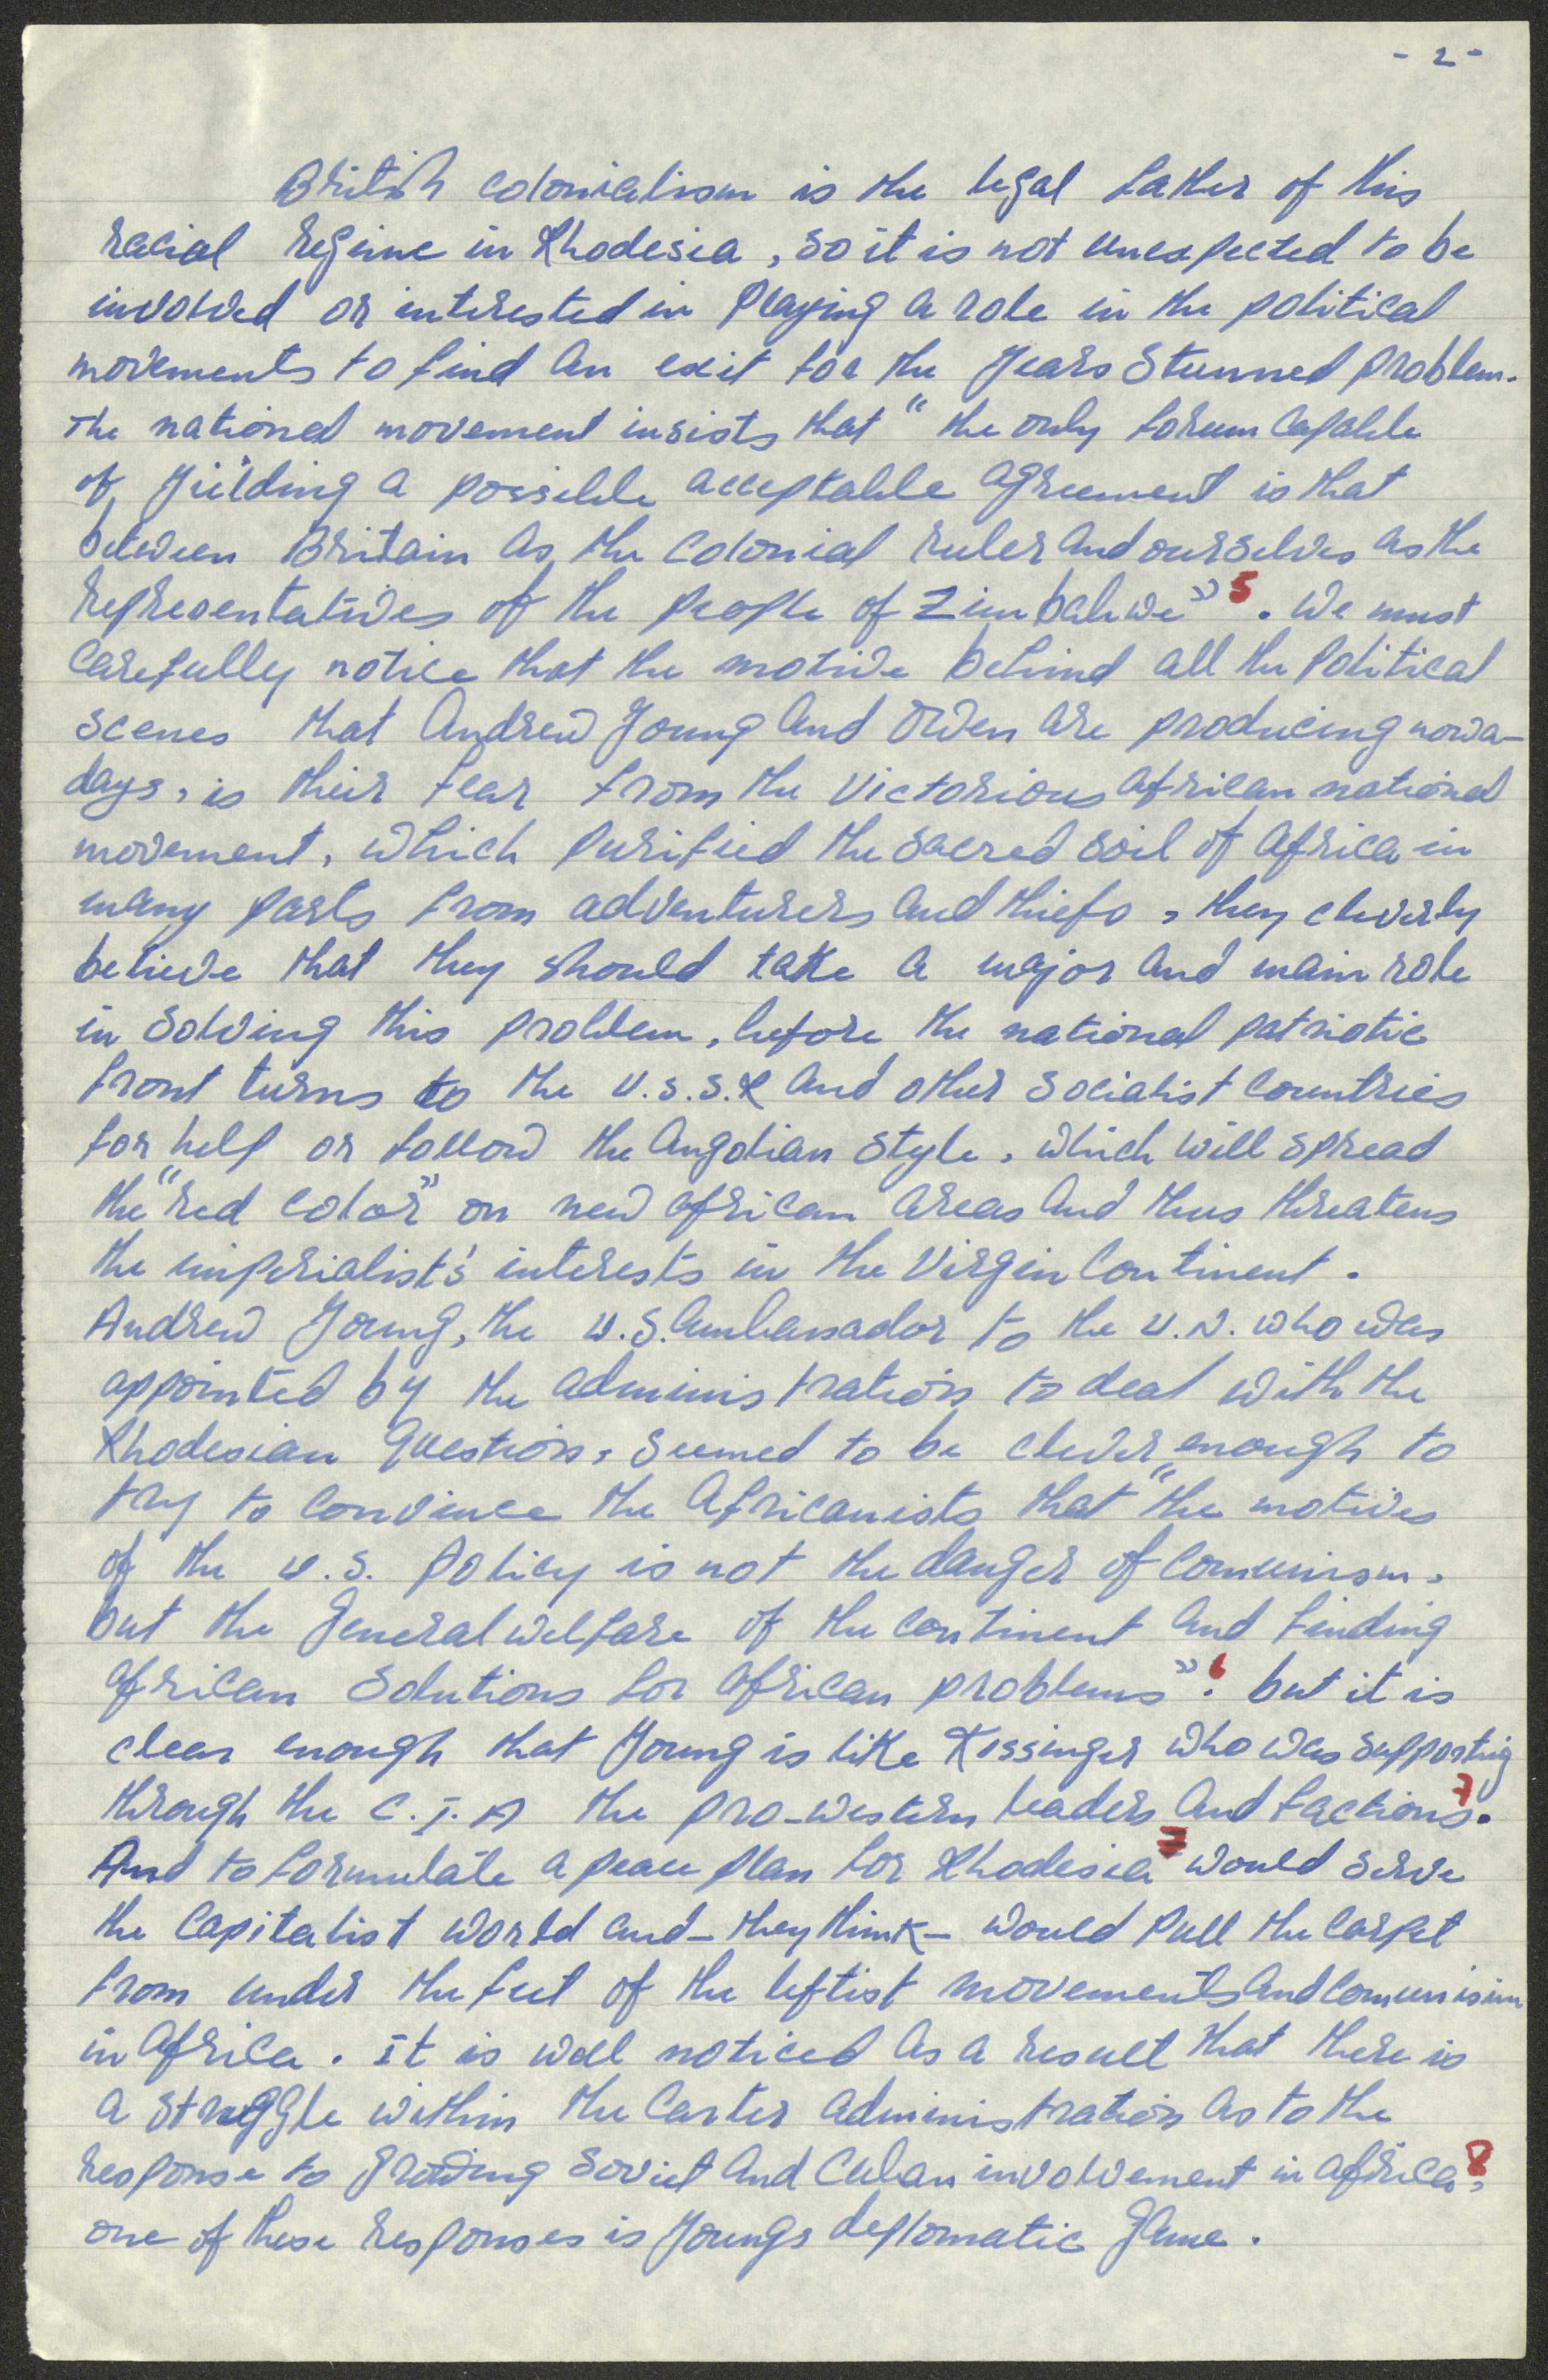 - 2 -
British colonialism is the legal father of this
racial regime in Rhodesia, so it is not unexpected to be
involved or interested in playing a role in the political
movements to find an exit for the years stunned problem.
The national movement insists that "the only forum capable
of yielding a possible acceptable agreement is that
between Britain as the colonial ruler and ourselves as the
representatives of the people of Zimbabwe" 5. We must
carefully notice that the motive behind all the political
scenes that Andrew Young and Owen are producing nowa-
days, is their fear from the victorious african national
movement, which purified the sacred soil of Africa in
many parts from adventurers and thiefs, they cleverly
believe that they should take a major and main role
in solving this problem, before the national patriotic
front turns to the U.S.S.R and other socialist countries
for help or follow the Angolian style, which will spread
the "red color" on new african areas and thus threatens
the imperialist's interests in the virgin continent.
Andrew Young, the U.S. ambassador to the U.N. who was
appointed by the administration to deal with the
Rhodesian question, seemed to be clever enough to
try to convince the Africanists that "the motives
of the U.S. policy is not the danger of comunism,
but the general welfare of the continent and finding
african solutions for african problems" 6. but it is
clear enough that Young is like Kissinger who was supporting
through the C.I.A the pro-western leaders and factions 7.
And to formulate a peace plan for Rhodesia would serve
the capitalist world and - they think - would pull the carpet
from under the feet of the leftist movements and comunisim
in Africa. It is well noticed as a result that there is
a struggle within the Carter administration as to the
response to growing soviet and Cuban involvement in africa 8,
one of these responses is Youngs deplomatic game.